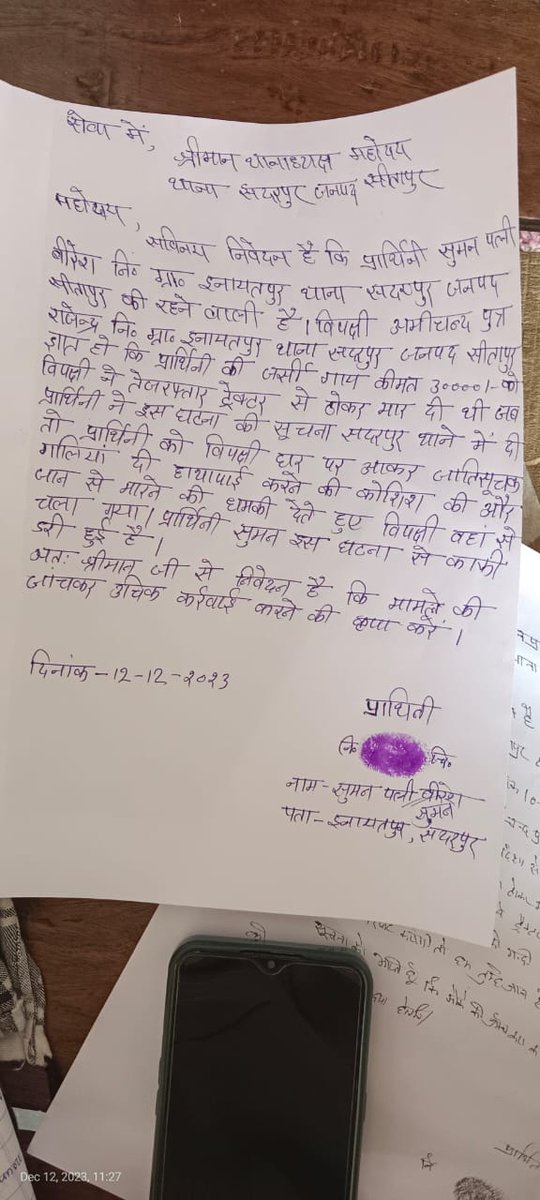 सेवा में,
श्रीमान थानाध्यक्ष महोदय
थाना सदरपुर जनपद सीतापुर
महोदय,
सविनय निवेदन है कि प्रार्थिनी सुमन पत्नी
बीरेश नि० ग्रा० इनायतपुर थाना सदरपुर जनपद
सीतापुर की रहने वाली है। विपक्षी अमीचन्द पुत्र
राजेन्द्र नि० ग्रा० इनायतपुर थाना सदरपुर जनपद सीतापुर
ज्ञात हो कि प्रार्थिनी की जर्सी गाय कीमत 30000/- को
विपक्षी ने तेजरफ्तार ट्रेक्टर से ठोकर मार दी थी जब
प्रार्थिनी ने इस घटना की सूचना सदरपुर थाने में दी
तो प्रार्थिनी को विपक्षी घर पर आकर जातिसूचक
गालियां दी हाथापाई करने की कोशिश की और
जान से मारने की धमकी देते हुए विपक्षी वहां से
चला गया। प्रार्थिनी सुमन इस घटना से काफी
डरी हुई है।
अतः श्रीमान जी से निवेदन है कि मामले की
जाचकर उचिक कर्रवाई करने की कृपा करें।
दिनांक-12-12-2023
प्राथिनी
नि० चि०
नाम- सुमन पत्नी वीरेश
सुमन
पता- इनायतपुर, सदरपुर
Dec 12, 2023, 11:27